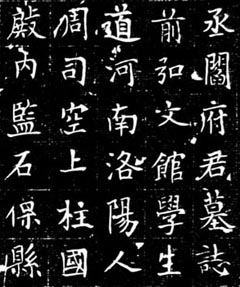 丞閻府君墓誌
前弘文館學生
道河南洛陽人
周司空上柱國
殿内監石保縣